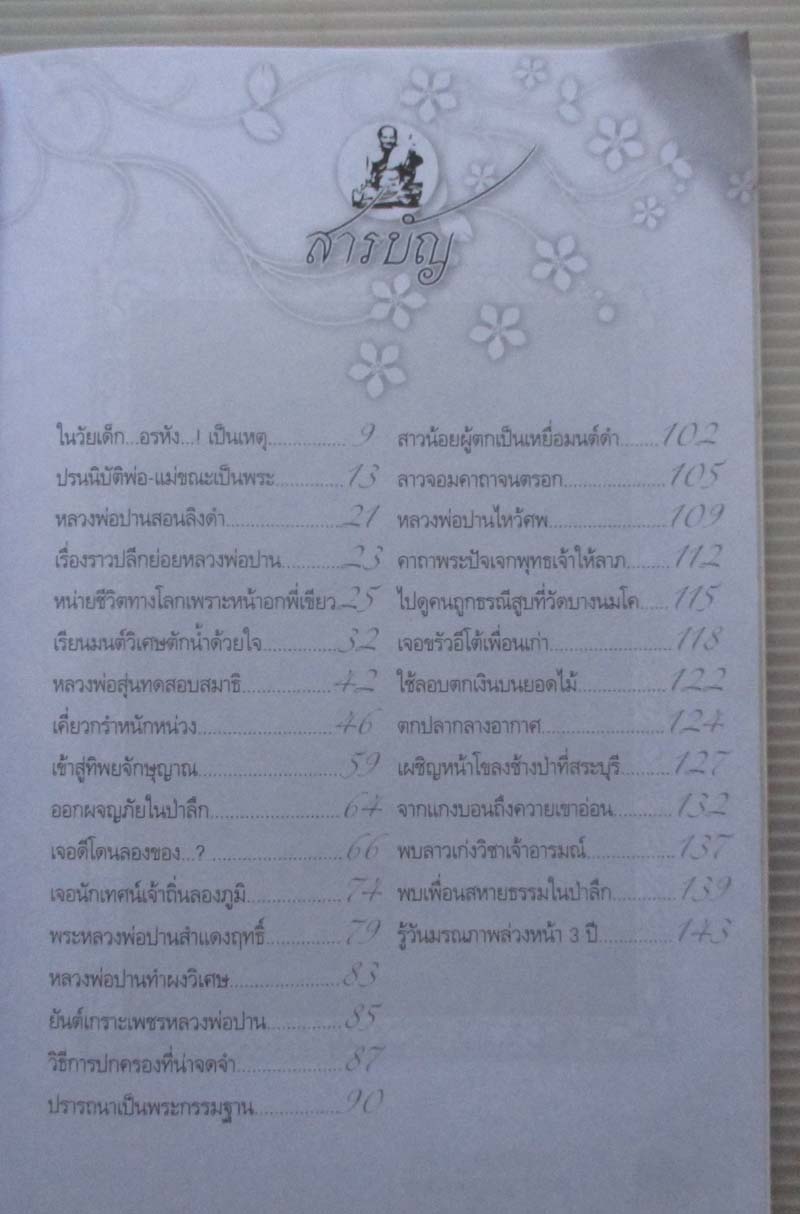 สารบัญ
ในวัยเด็ก...อรหัง...! เป็นเหตุ............... 9
ปรนนิบัติพ่อ-แม่ขณะเป็นพระ.............13
หลวงพ่อปานสอนลิงดำ......................21
เรื่องราวปลีกย่อยหลวงพ่อปาน...........23
หน่ายชีวิตทางโลกเพราะหน้าอกพี่เขียว.25
เรียนมนต์วิเศษตักน้ำด้วยใจ..............32
หลวงพ่อสุ่นทดสอบสมาธิ.................42
เคี่ยวกรำหนักหน่วง..........................46
เข้าสู่ทิพยจักษุญาณ..........................59
ออกผจญภัยในป่าลึก.........................64
เจอดีโดนลองของ...? .........................66
เจอนักเทศน์เจ้าถิ่นลองภูมิ.................74
พระหลวงพ่อปานสำแดงฤทธิ์.............79
หลวงพ่อปานทำผงวิเศษ...................83
ยันต์เกราะเพชรหลวงพ่อปาน............85
วิธีการปกครองที่น่าจดจำ..................87
ปรารถนาเป็นพระกรรมฐาน...............90
สาวน้อยผู้ตกเป็นเหยื่อมนต์ดำ.......102
ลาวจอมคาถาจนตรอก....................105
หลวงพ่อปานไหว้ศพ......................109
คาถาพระปัจเจกพุทธเจ้าให้ลาภ........112
ไปดูคนถูกธรณีสูบที่วัดบางนมโค.....115
เจอขรัวอีโต้เพื่อนเก่า.......................118
ใช้ลอบตกเงินบนยอดไม้.................122
ตกปลากลางอากาศ........................124
เผชิญหน้าโขลงช้างป่าที่สระบุรี.........127
จากแกงบอนถึงควายเขาอ่อน..........132
พบลาวเก่งวิชาเจ้าอารมณ์................137
พบเพื่อนสหายธรรมในป่าลึก...........139
รู้วันมรณภาพล่วงหน้า 3 ปี..............143